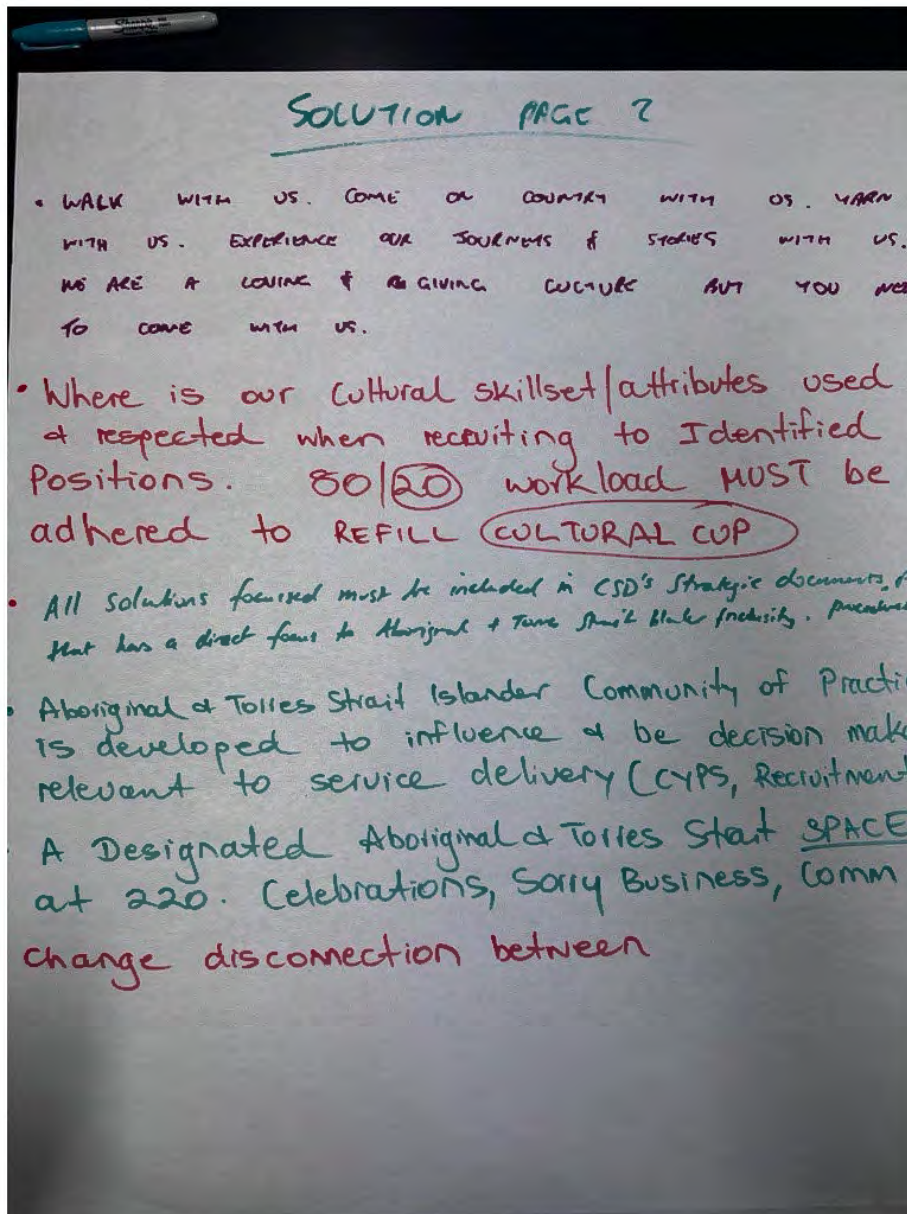 SOLUTION PAGE 2
• WALK WITH US. COME ON COUNTRY WITH US. YARN
WITH US. EXPERIENCE OUR JOURNEYS & STORIES WITH US.
WE ARE A LOVING & GIVING CULTURE BUT YOU NEE
TO COME WITH US.
• Where is our Cultural skillset/attributes used
& respected when recruiting to Identified
Positions. 80/20 workload MUST be
adhered to REFILL CULTURAL CUP
• All solutions focused must be included in CSD's Strategic documents,
that has a direct focus to Aboriginal + Torres Strait
• Aboriginal & Torres Strait Islander Community of Practi
is developed to influence & be decision make
relevant to service delivery (CYPS, Recruitment
• A Designated Aboriginal & Torres Strait SPACE
at 220. Celebrations, Sorry Business, Comm
change disconnection between